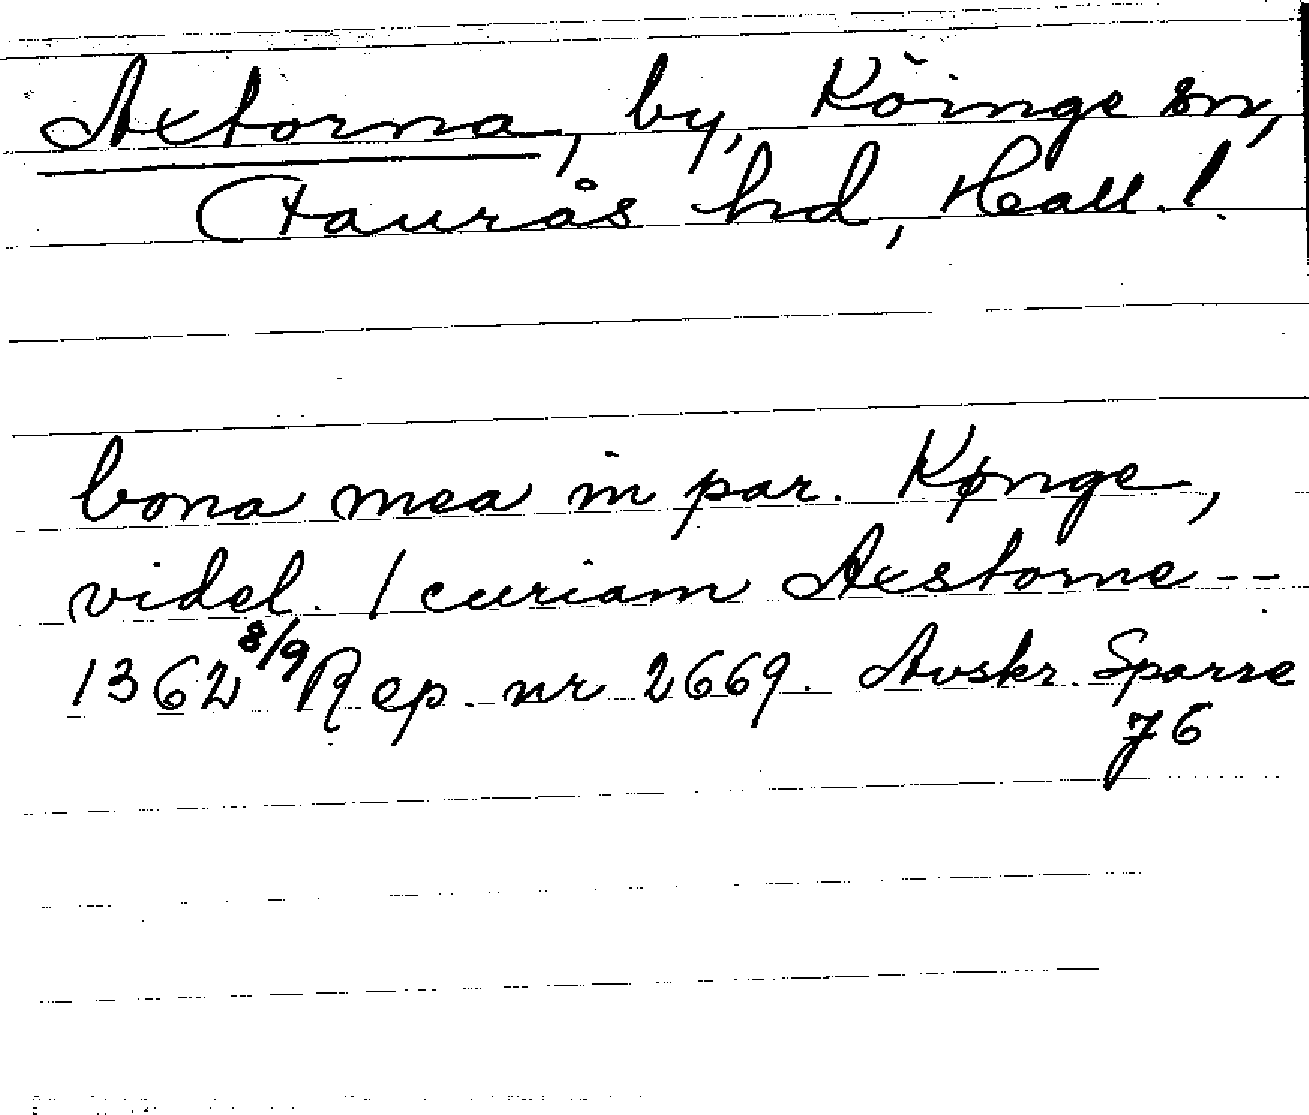 Axtorna, by, Köinge sn,
Faurås hd, Hall. l.
bona mea in par. Kønge,
videl. 1 curiam Axstorne --
1362 8/9 Rep. nr 2669. Avskr. Sparre
76